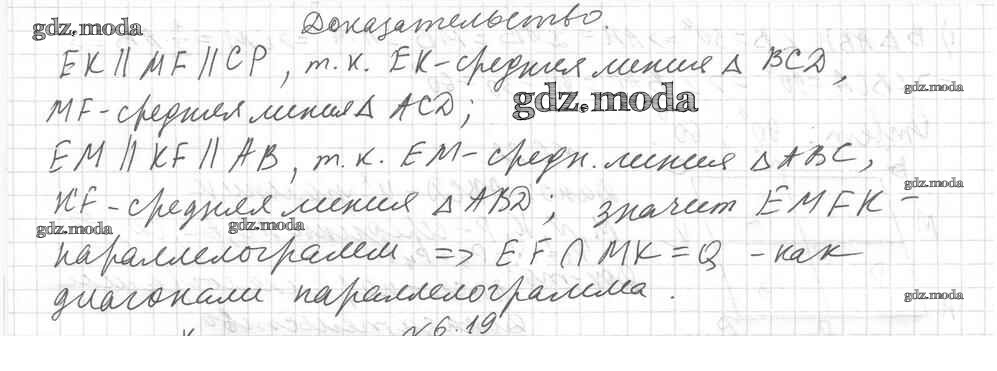 Доказательство.
gdz.moda
EK || MF || CP, т.к. EK-средняя линия Δ BCD,
gdz.moda
MF-средняя линия Δ ACD;
gdz.moda
EM || KF || AB, т.к. EM-средн. линия Δ ABC,
gdz.moda
KF-средняя линия Δ ABD; значит EMFK -
gdz.moda gdz.moda
параллелограмм => EF ∩ MK = Q - как
диагонали параллелограмма.
gdz.moda
N6.19